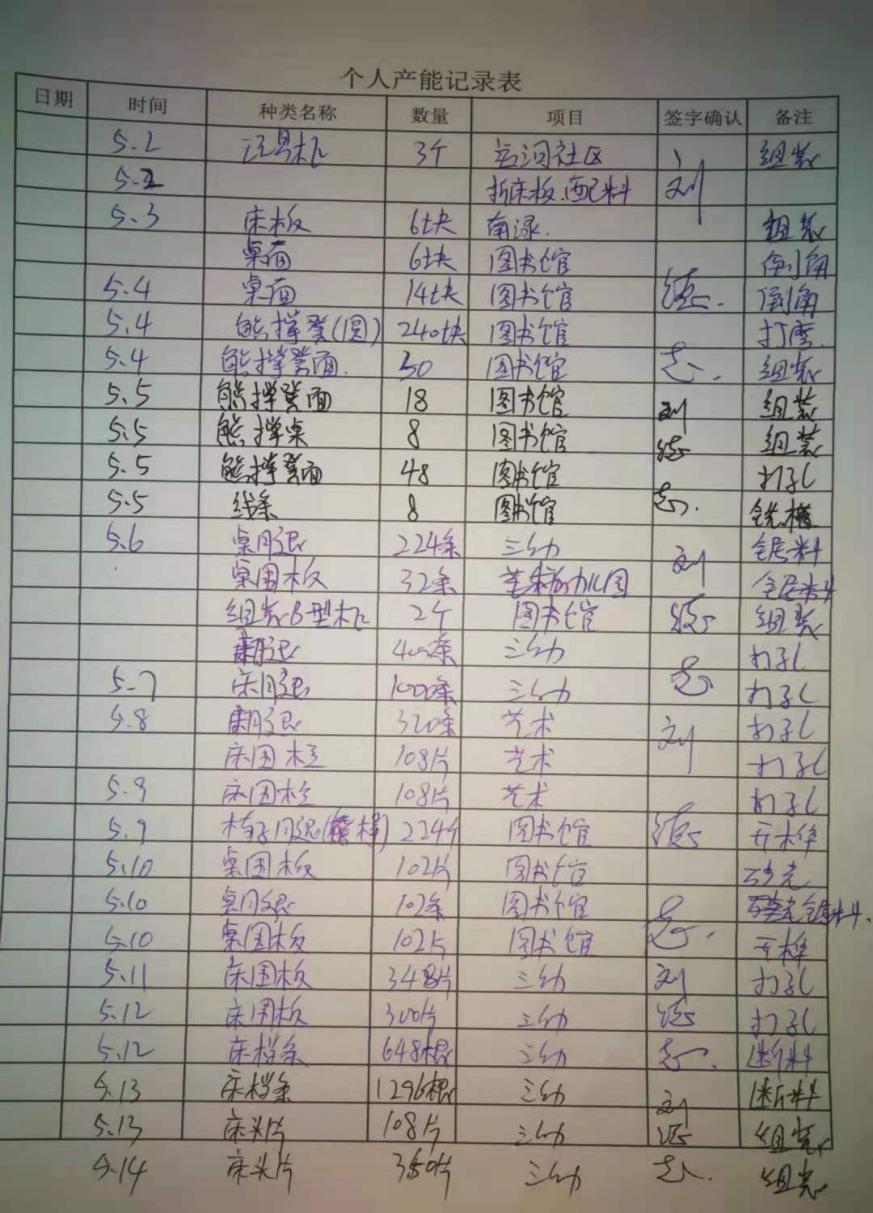 个人产能记录表
日期 时间 种类名称 数量 项目 签字确认 备注
5.2 3个 社区 组装
5.2 拆床板.配料 刘
5.3 床板 6块 南渌. 组装
桌面 6块 图书馆 倒角
5.4 桌面 14块 图书馆 德. 倒角
5.4 熊撑凳(圆) 240块 图书馆 打磨.
5.4 熊撑凳面. 50 图书馆 志. 组装
5.5 熊撑凳面 18 图书馆 刘 组装
5.5 熊撑桌 8 图书馆 德 组装
5.5 熊撑凳面 48 图书馆 打孔
5.5 线条 8 图书馆 志. 铣槽
5.6 桌腿 224条 三幼 刘 锯料
桌围板 32条 艺术幼儿园 锯料
组装B型机 2个 图书馆 德 组装
腿 400条 三幼 打孔
5.7 床腿 1000条 三幼 志 打孔
5.8 腿 320条 艺术 刘 打孔
床围板 108片 艺术 打孔
5.9 床围板 108片 艺术 打孔
5.9 224个 图书馆 德 开榫
5.10 桌围板 102片 图书馆
5.10 桌腿 102条 图书馆 锯料.
5.10 桌围板 102片 图书馆 志. 开榫
5.11 床围板 348片 三幼 刘 打孔
5.12 床围板 300片 三幼 德 打孔
5.12 床档条 648根 三幼 志. 断料
5.13 床档条 1296根 三幼 刘 断料
5.13 床头片 108片 三幼 德 组装
5.14 床头片 350片 三幼 志. 组装